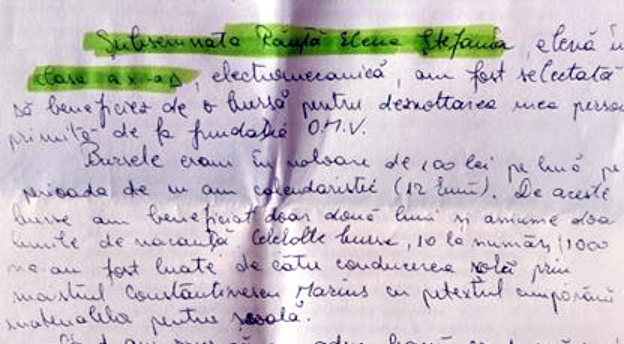 Subsemnata Păuță Elena Ștefania, elevă în
clasa a XI-a D, electromecanică, am fost selectată
să beneficiez de o bursă pentru dezvoltarea mea perso
primită de la fundația O.M.V.
Bursele erau în valoare de 100 lei pe lună pe
perioada de un an calendaristic (12 luni). De aceste
burse am beneficiat doar două luni și anume doa
lunile de vacanță. Celelalte burse, 10 la număr, 1000
ne-au fost luate de către conducerea școlii prin
maistrul Constantinescu Marius cu pretextul cumpărării
materialelor pentru școală.